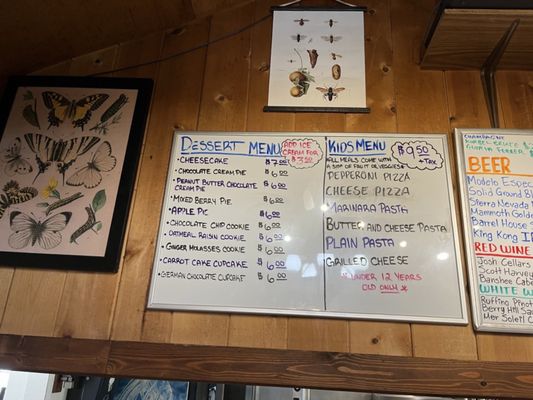 DESSERT MENU
ADD ICE
CREAM FOR
$3.00
CHEESECAKE $7.00
CHOCOLATE CREAM PIE $6.00
PEANUT BUTTER CHOCOLATE
CREAM PIE $6.00
MIXED BERRY PIE $6.00
APPLE PIE $6.00
CHOCOLATE CHIP COOKIE $6.00
OATMEAL RAISIN COOKIE $6.00
GINGER MOLASSES COOKIE $6.00
CARROT CAKE CUPCAKE $6.00
GERMAN CHOCOLATE CUPCAKE $6.00
KIDS MENU
$9.50
+ TAX
ALL MEALS COME WITH
A SIDE OF VEGGIES
PEPPERONI PIZZA
CHEESE PIZZA
MARINARA PASTA
BUTTER AND CHEESE PASTA
PLAIN PASTA
GRILLED CHEESE
*UNDER 12 YEARS
OLD ONLY*
CHAMPAGNE
BEER
Modelo Espec
Solid Ground Bl
Sierra Nevada
Mammoth Golde
Barrel of
King Kong I
RED WINE
Josh Cellars
Scott Harvey
Banshee Cabe
WHITE W
Ruffing Pinot
Berry Hill
Mer Soleil C